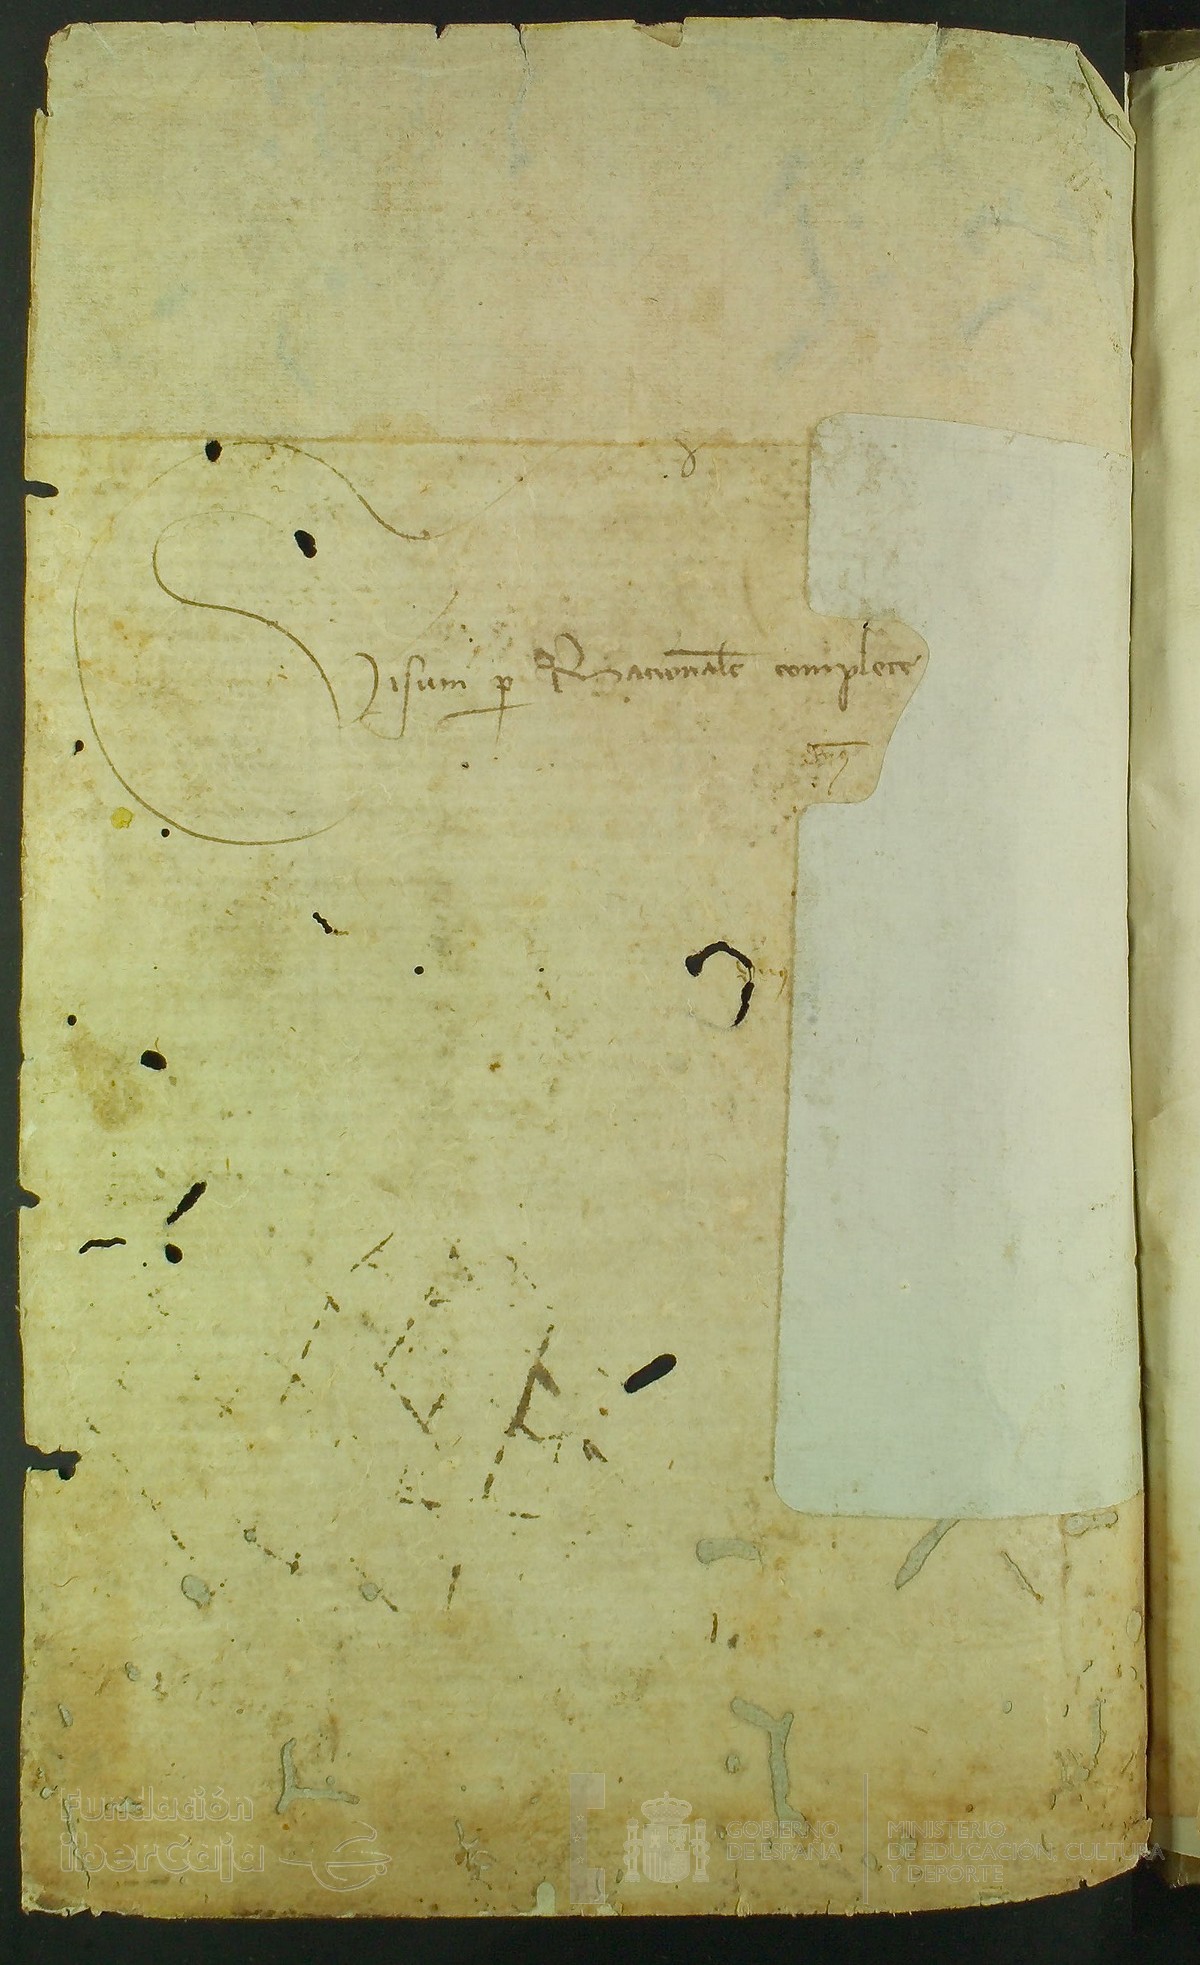 Visum p Racionale complete
Fundación
ibercaja
GOBIERNO
DE ESPAÑA
MINISTERIO
DE EDUCACIÓN, CULTURA
Y DEPORTE